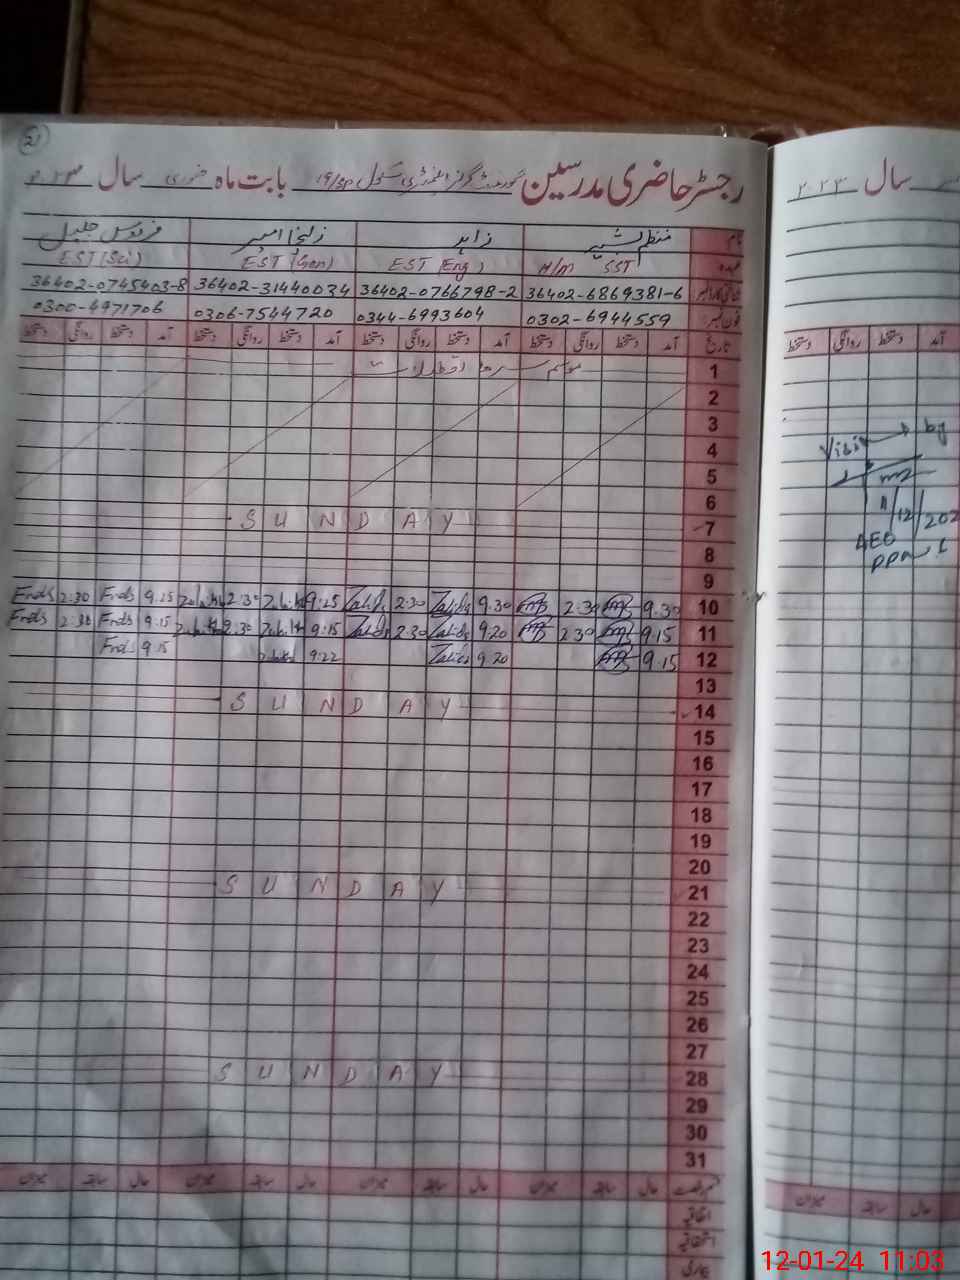 21
رجسٹر حاضری مدرسین گورنمنٹ گرلز ایلیمنٹری سکول 19/SP بابت ماہ جنوری سال ۲۰۲۳
نام زاہد زلیخا امیر فردوس جلیل
عہدہ H/M SST EST (Eng) EST (Gen) EST (Sci)
36402-6869381-6 36402-0766798-2 36402-31440034 36402-0745403-8
فون نمبر 0302-6944559 0344-6993604 0306-7544720 0300-4971706
تاریخ آمد دستخط روانگی دستخط آمد دستخط روانگی دستخط آمد دستخط روانگی دستخط آمد دستخط روانگی دستخط
1 موسم سرما تعطیلات
2
3
4
5
6
7 SUNDAY
8
9
10 9.30 2:30 9.30 Zahida 2:30 Zahida 9:25 2:30 9.25 Frds 2:30 Frds
11 9.15 2:30 9.20 Zahida 2:30 Zahida 9:15 2:30 9.15 Frds 2:30 Frds
12 9.15 9.20 Zahida 9:22 9.15 Frds
13
14 SUNDAY
15
16
17
18
19
20
21 SUNDAY
22
23
24
25
26
27
28 SUNDAY
29
30
31
حال سابقہ میزان حال سابقہ میزان حال سابقہ میزان حال سابقہ میزان
اتفاقیہ
استحقاقیہ
بیماری
سال ۲۰۲۳
آمد دستخط روانگی دستخط
Visit by
11/12/202
AEO
حال سابقہ میزان
12-01-24 11:03